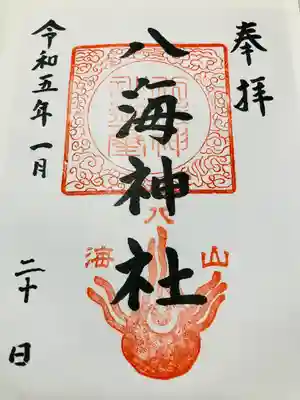 奉拝
八海神社
八
海
山
令和五年一月
二十日